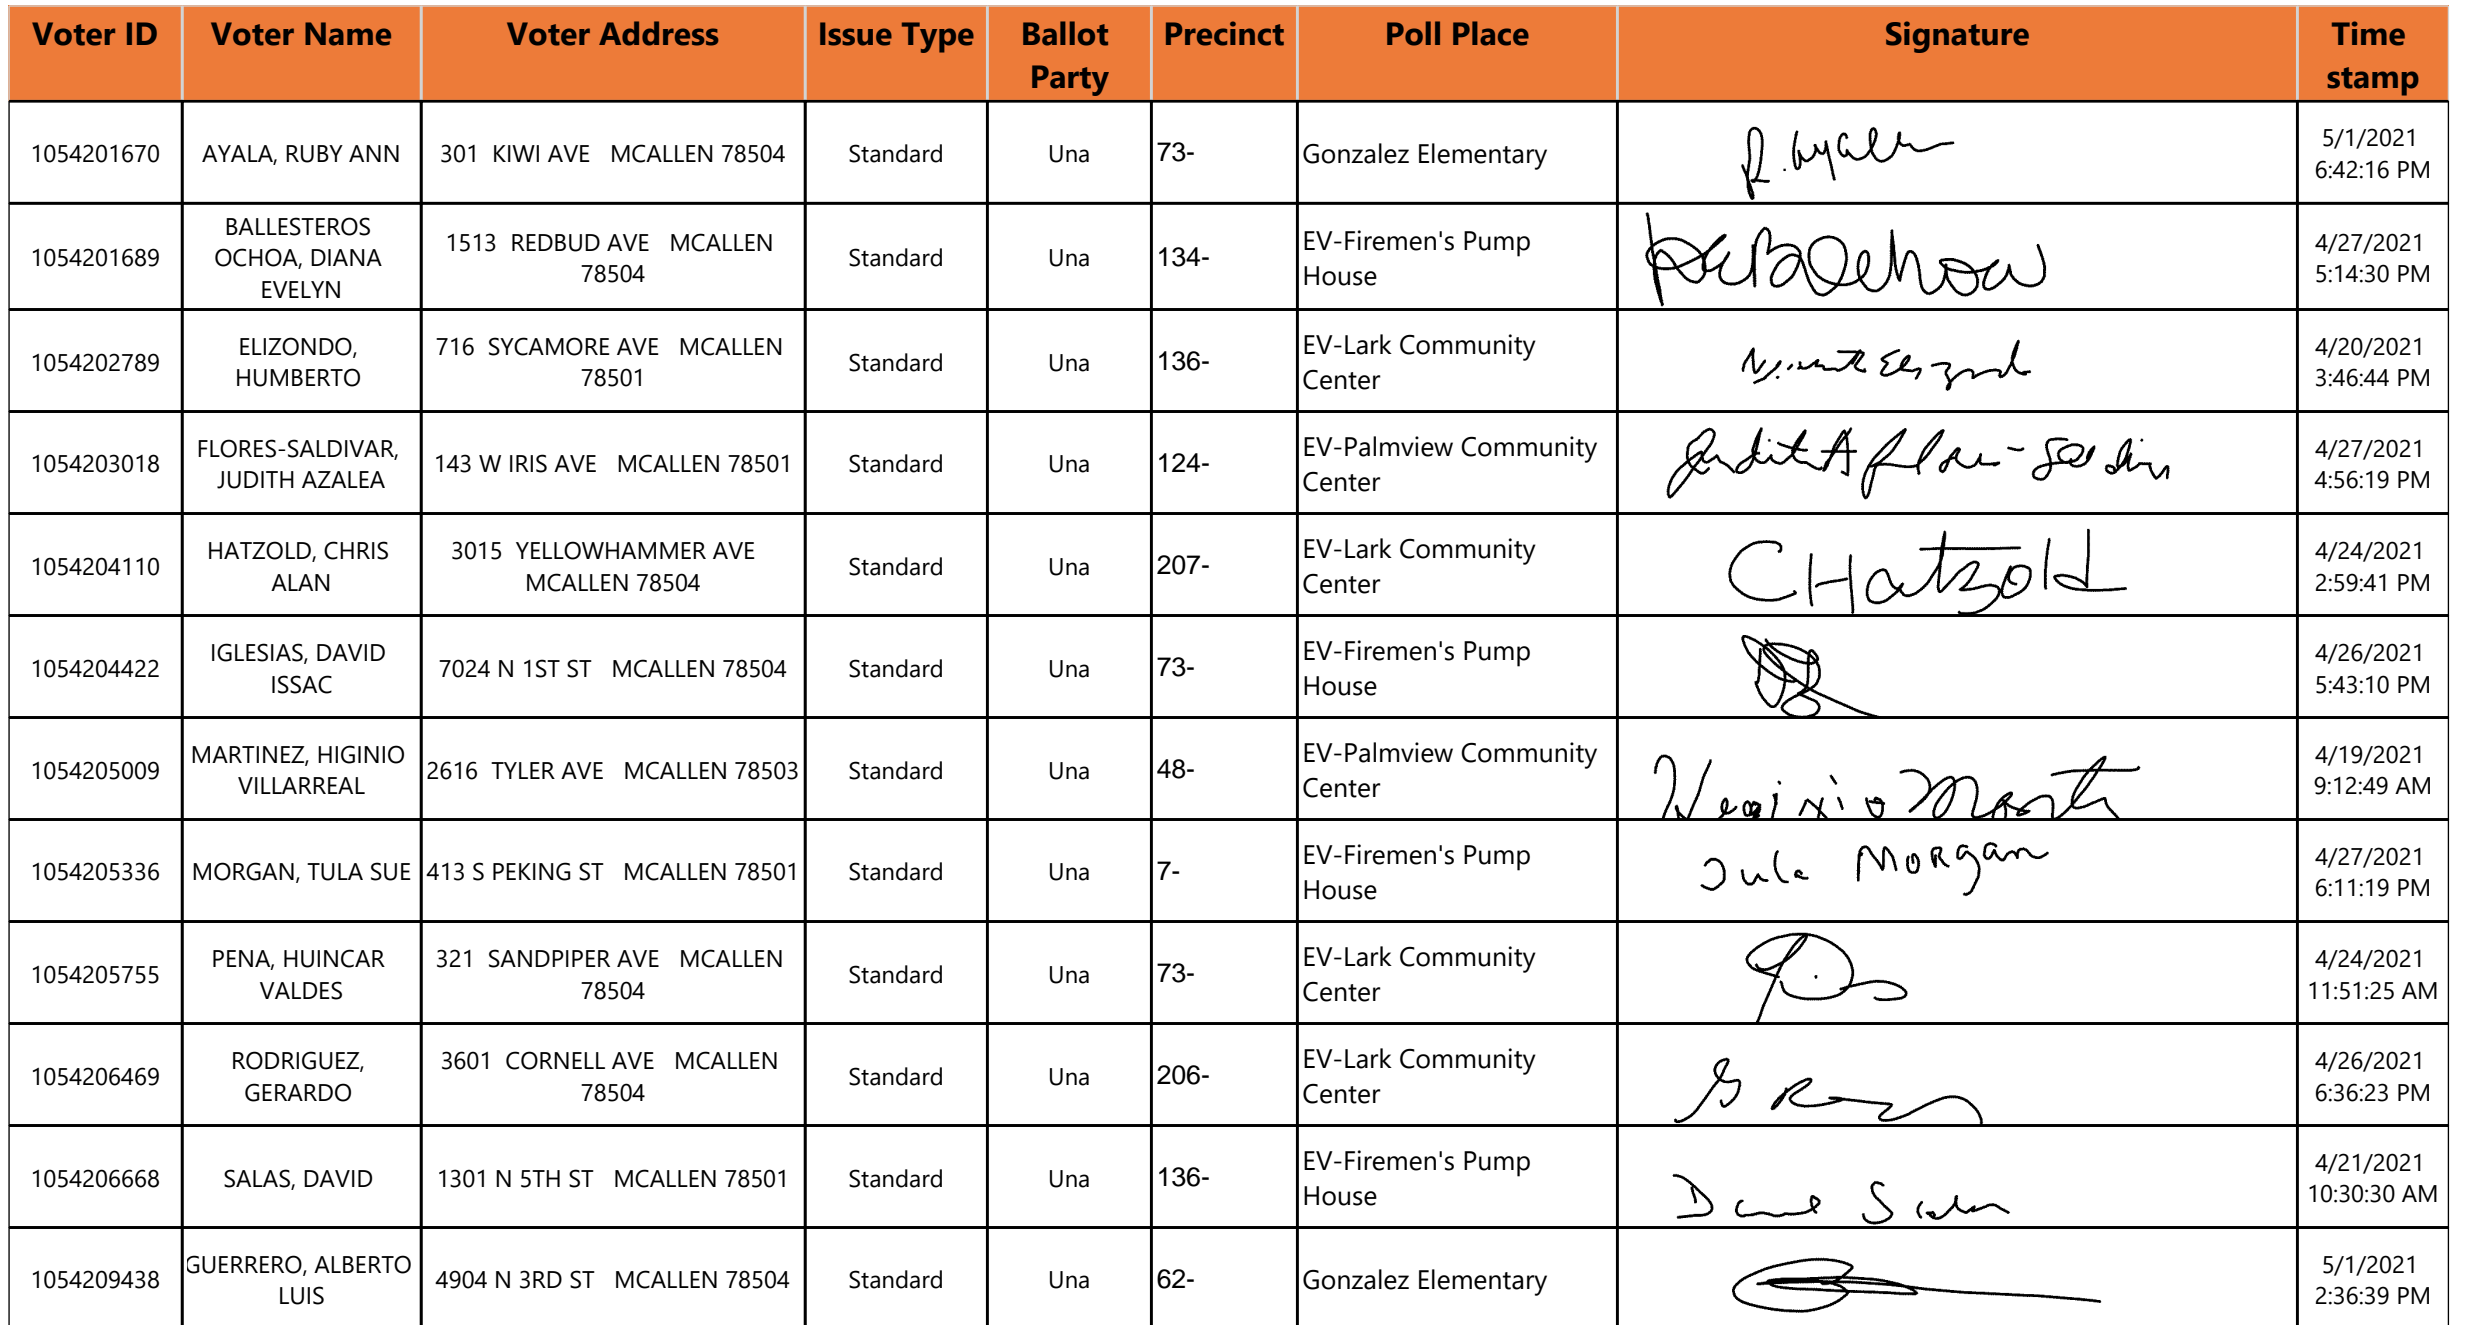 Voter ID Voter Name Voter Address Issue Type Ballot Party Precinct Poll Place Signature Time stamp
1054201670 AYALA, RUBY ANN 301 KIWI AVE MCALLEN 78504 Standard Una 73- Gonzalez Elementary R. Ayala 5/1/2021 6:42:16 PM
1054201689 BALLESTEROS OCHOA, DIANA EVELYN 1513 REDBUD AVE MCALLEN 78504 Standard Una 134- EV-Firemen's Pump House 4/27/2021 5:14:30 PM
1054202789 ELIZONDO, HUMBERTO 716 SYCAMORE AVE MCALLEN 78501 Standard Una 136- EV-Lark Community Center 4/20/2021 3:46:44 PM
1054203018 FLORES-SALDIVAR, JUDITH AZALEA 143 W IRIS AVE MCALLEN 78501 Standard Una 124- EV-Palmview Community Center 4/27/2021 4:56:19 PM
1054204110 HATZOLD, CHRIS ALAN 3015 YELLOWHAMMER AVE MCALLEN 78504 Standard Una 207- EV-Lark Community Center CHatzold 4/24/2021 2:59:41 PM
1054204422 IGLESIAS, DAVID ISSAC 7024 N 1ST ST MCALLEN 78504 Standard Una 73- EV-Firemen's Pump House 4/26/2021 5:43:10 PM
1054205009 MARTINEZ, HIGINIO VILLARREAL 2616 TYLER AVE MCALLEN 78503 Standard Una 48- EV-Palmview Community Center 4/19/2021 9:12:49 AM
1054205336 MORGAN, TULA SUE 413 S PEKING ST MCALLEN 78501 Standard Una 7- EV-Firemen's Pump House Tula Morgan 4/27/2021 6:11:19 PM
1054205755 PENA, HUINCAR VALDES 321 SANDPIPER AVE MCALLEN 78504 Standard Una 73- EV-Lark Community Center 4/24/2021 11:51:25 AM
1054206469 RODRIGUEZ, GERARDO 3601 CORNELL AVE MCALLEN 78504 Standard Una 206- EV-Lark Community Center 4/26/2021 6:36:23 PM
1054206668 SALAS, DAVID 1301 N 5TH ST MCALLEN 78501 Standard Una 136- EV-Firemen's Pump House 4/21/2021 10:30:30 AM
1054209438 GUERRERO, ALBERTO LUIS 4904 N 3RD ST MCALLEN 78504 Standard Una 62- Gonzalez Elementary 5/1/2021 2:36:39 PM